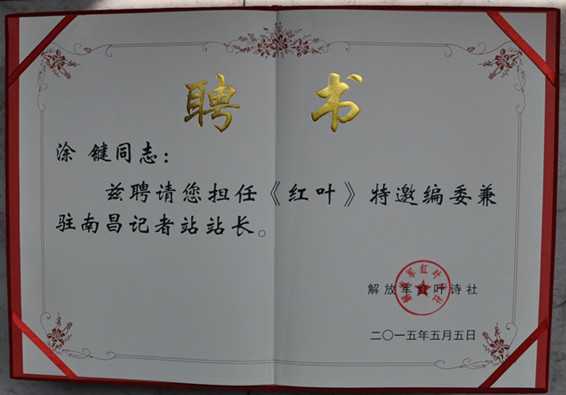 聘 书
涂 键同志：
兹聘请您担任《红叶》特邀编委兼
驻南昌记者站站长。
解放军红叶诗社
二〇一五年五月五日